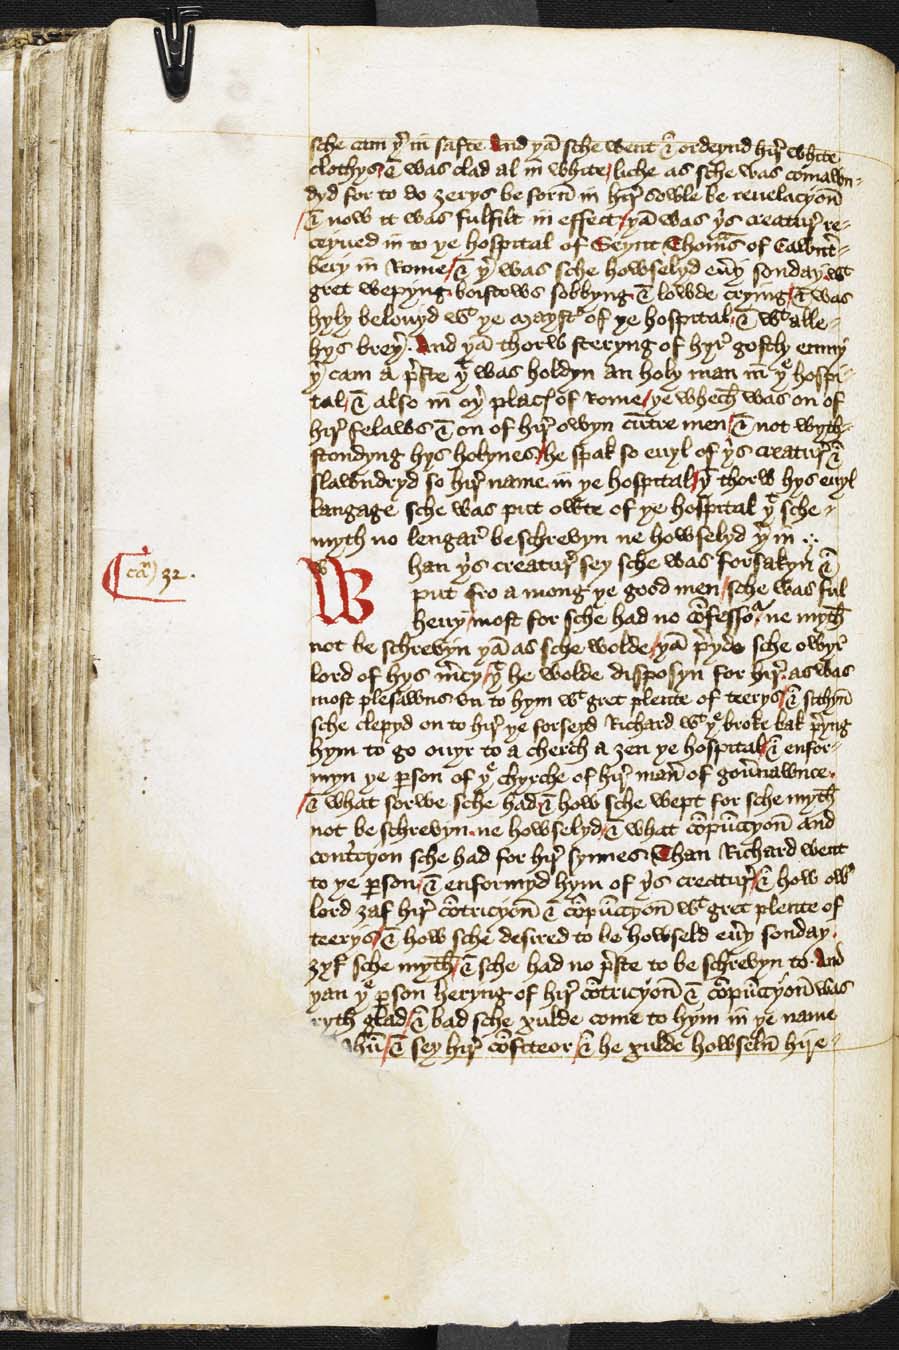 sche cam yͬ in safte And yā sche went & ordeynd hirͬ white
clothys / & was clad al in white / liche as sche was comawn-
dyd for to do ȝerys be forn̄ in hirͬ sowle be reuelacyon̄
/ & now it was fulfilt in effect / yā was yͥs creaturͬ re-
ceyued in to ye hospital of Seynt Thom̄s of Cawnt̄-
bery in Rome / & yͬ was sche howselyd eūy sonday wͭ
gret wepyng. boistows sobbyng. & lowde crying / & was
hyly belouyd wͭ ye maystͬ of ye hospital / & wͭ alle-
hys breyͬ. And yā thorw steryng of hyrͬ gostly enmy
yͬ cam a p̄ste yͭ was holdyn an holy man in yͤ hospi-
tal / & also in oyͬ placˢ of Rome / ye whech̄ was on of
hirͬ felaws & on of hirͬ owyn cūtre men / & not wyth-
stondyng hys holynes / he spak so euyl of yͥs creaturͬ &
slawndryd so hirͬ name in ye hospital / yͭ thorw hys euyl
langage sche was put owte of ye hospital yͭ sche-
myth no lengarͬ be schrevyn ne howselyd yͬ in ..
Whan yͥs creaturͬ sey sche was forsakyn &
cam̄ 32.
put fro a mong ye good men / sche was ful
heuy / most for sche had no cōfessoͬ. ne myth̄
not be schrevyn yā as sche wolde / yā p̄yde sche owyrͬ
lord of hys m̄cy / yͭ he wolde disposyn for hirͬ. as was
most plesawns vn to hym wͭ gret plente of teerys / & sithyn̄
sche clepyd on to hirͬ ye forseyd Richard wͭ yͤ broke bak p̄yng
hym to go ouyr to a cherch a ȝen ye hospital / & enfor-
myn ye ꝑson of yͤ chyrche of hirͬ man̄ of goūnawnce.
/ & what sorwe sche had / & how sche wept for sche myth̄
not be schrevyn. ne howselyd / & what cōpūccyon̄ and
contͬcyon sche had for hirͬ synnes. Than Richard went
to ye ꝑson / & enformyd hym of yͥs creaturͬ / & how owͬ
lord ȝaf hirͬ cōtricyon̄ & cōpūccyon̄ wͭ gret plente of
teerys / & how sche desired to be howseld eūy sonday.
ȝyf sche myth̄ / & sche had no p̄ste to be schrevyn to. And
yan yͤ ꝑson heryng of hirͬ cōtricyon̄ & cōpūccyon̄ was
ryth glad / & bad sche xulde come to hym in ye name
hū / & sey hirͬ cōfiteor / & he xulde howseln̄ hire